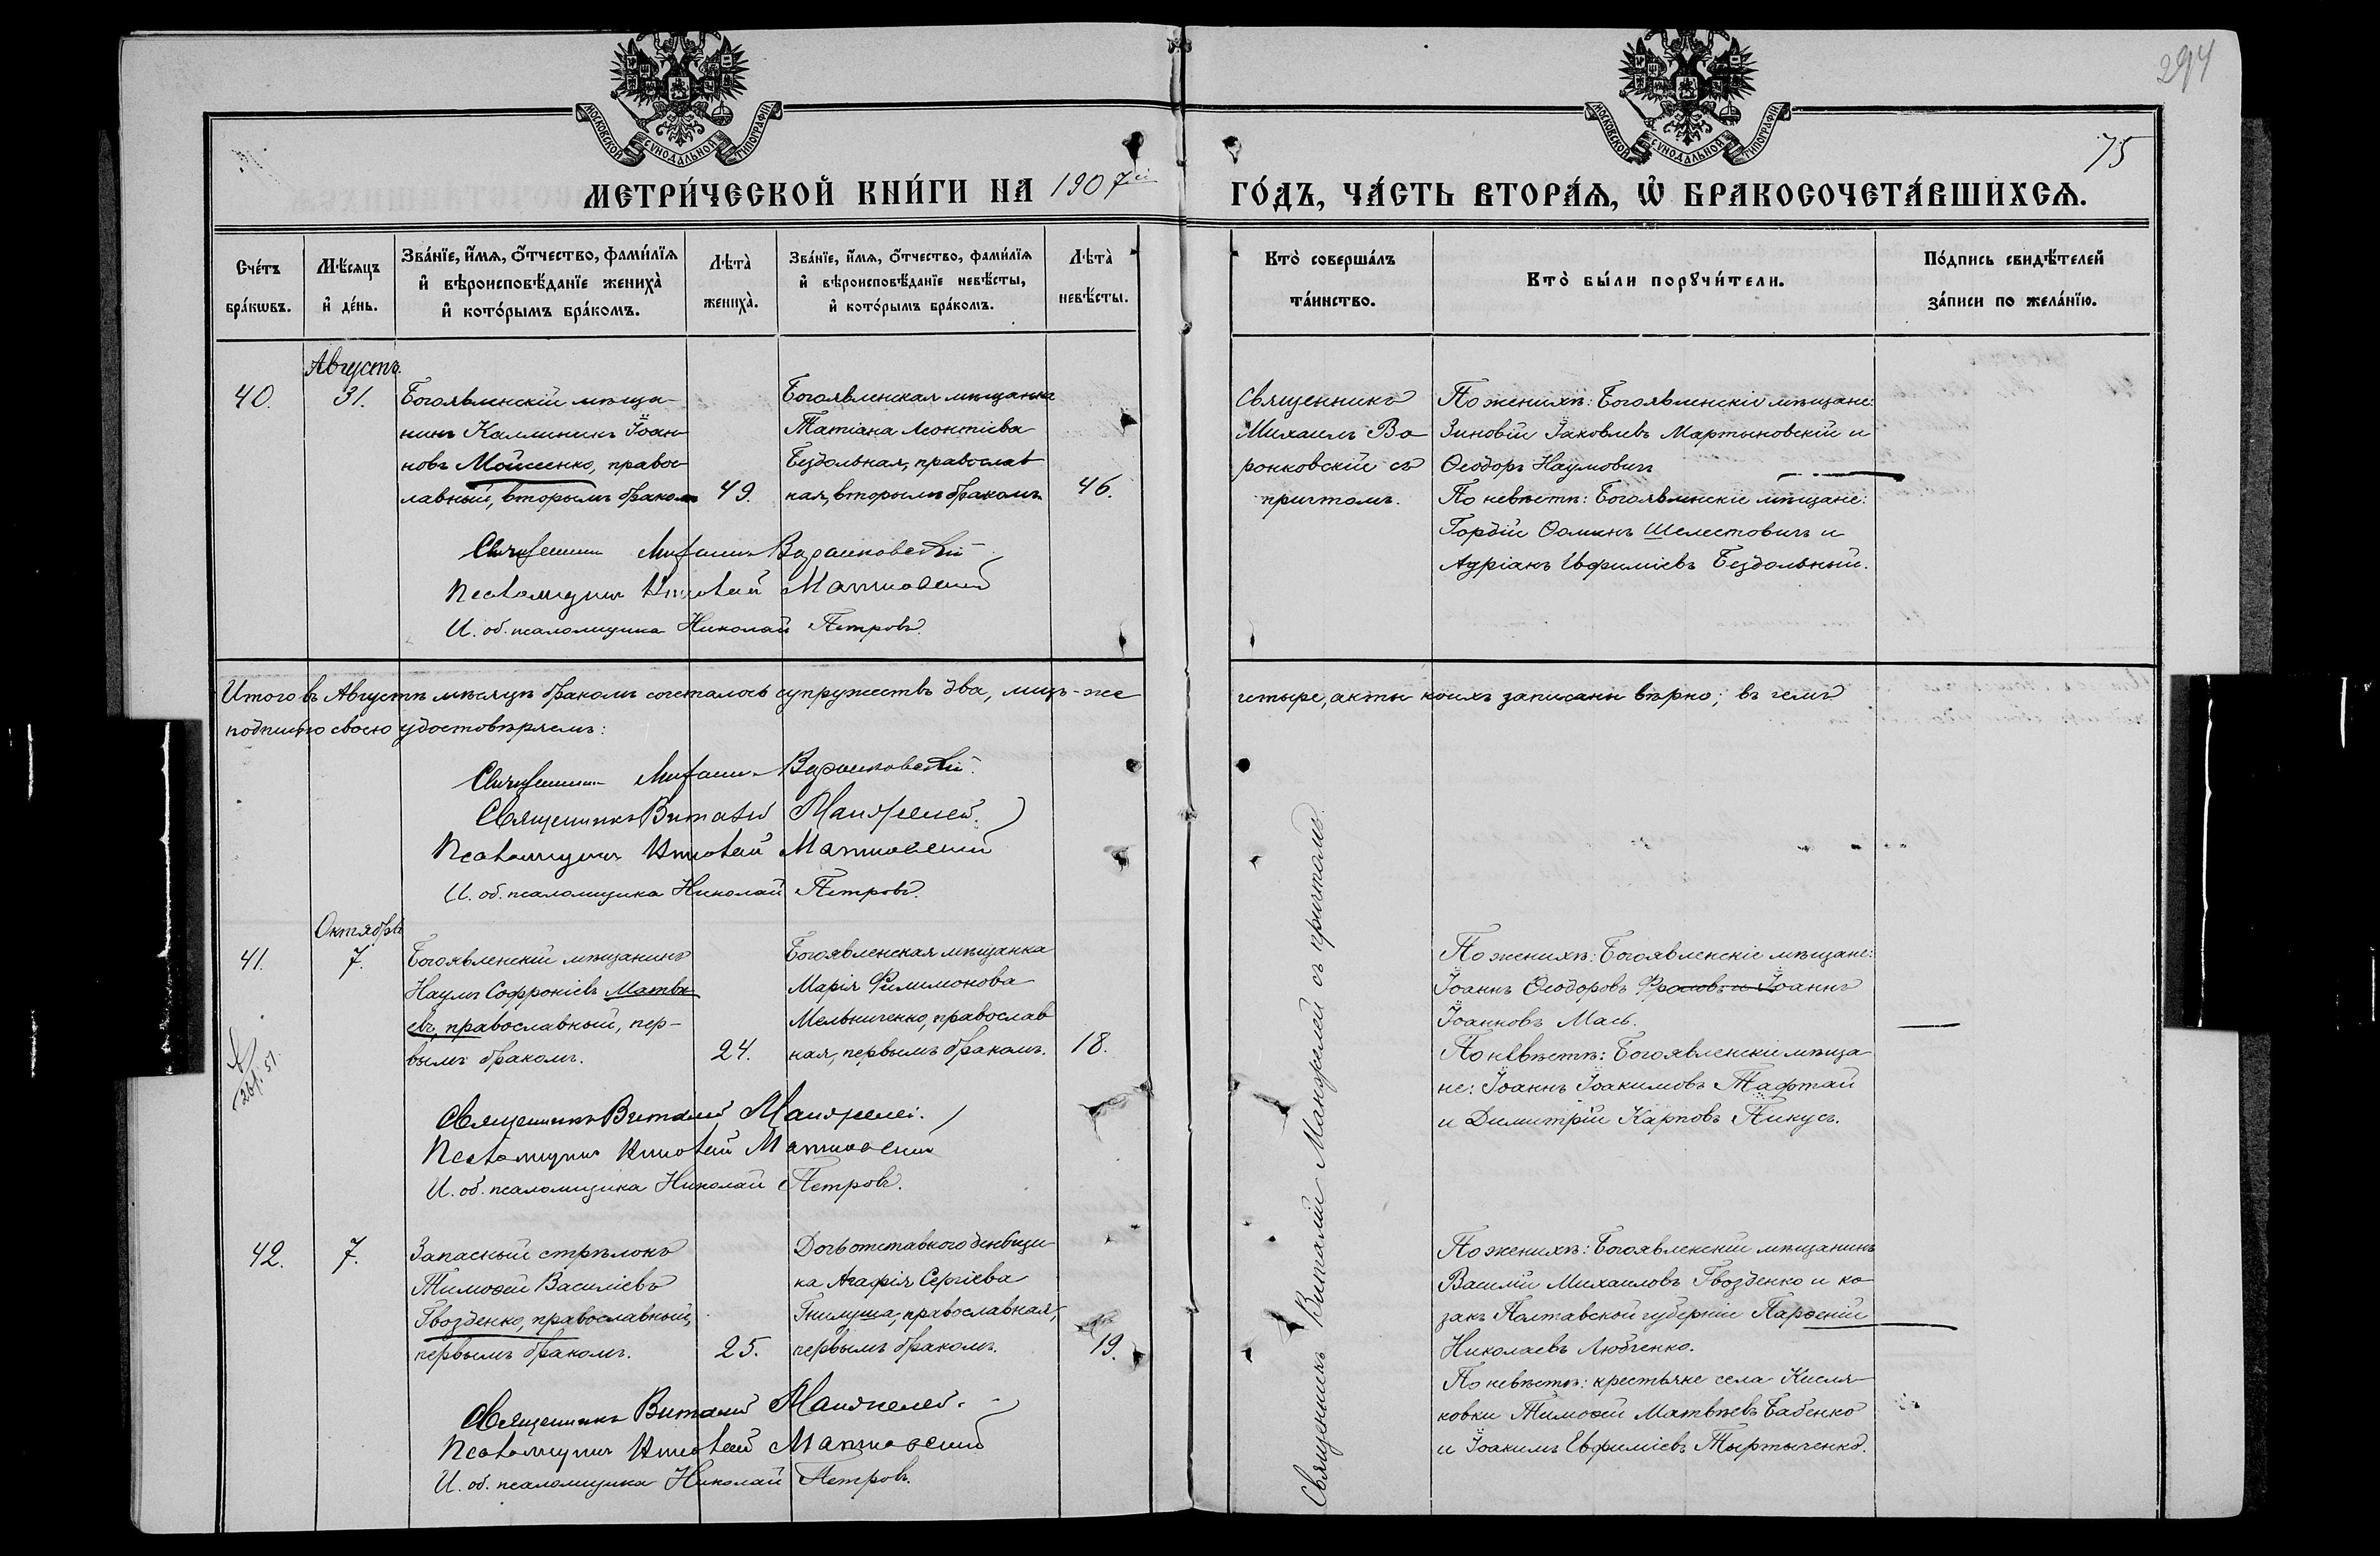 294
75
МОСКОВСКОЙ СѴНОДАЛЬНОЙ ТИПОГРАФІИ
МОСКОВСКОЙ СѴНОДАЛЬНОЙ ТИПОГРАФІИ
МЕТРИ́ЧЕСКОЙ КНИ́ГИ НА 1907й ГО́ДЪ, ЧА́СТЬ ВТОРА́Ѧ, Ѡ҆ БРАКОСОЧЕТА́ВШИХСѦ.
Сче́тъ бра́кѡвъ.
Мѣ́сяцъ и҆ де́нь.
Зва́нїе, и҆́мѧ, ѻ҆́тчество, фами́лїѧ
и҆ вѣроисповѣ́данїе жениха̀
и҆ кото́рымъ бра́комъ.
Лѣта̀ жениха̀.
Зва́нїе, и҆́мѧ, ѻ҆́тчество, фами́лїѧ
и҆ вѣроисповѣ́данїе невѣ́сты,
и҆ кото́рымъ бра́комъ.
Лѣта̀ невѣ́сты.
Кто̀ соверша́лъ та́инство.
Кто̀ бы́ли порꙋчи́тели.
По́дпись свидѣ́телей
за́писи по жела́нїю.
Августъ.
40.
31.
Богоявленскій мѣща-
нинъ Каллиникъ Іоан-
новъ Мойсеенко, правос-
лавный, вторымъ бракомъ
49.
Богоявленская мѣщанка
Татіана Леонтіева
Бездольная, православ
ная, вторымъ бракомъ
46.
Священникъ
Михаилъ Во
ронковскій съ
причтомъ.
По женихѣ: Богоявленскіе мѣщане:
Зиновій Іаковлевъ Мартыновскій и
Ѳеодоръ Наумовичъ
По невѣстѣ: Богоявленскіе мѣщане:
Гордій Ѳоминъ Шелестовичъ и
Адріанъ Евфиміевъ Бездольный.
Священникъ Михаилъ Воронковскій
Псаломщикъ
И. об. псаломщика Николай Петровъ.
Итого въ Августѣ мѣсяцѣ бракомъ сочеталось супружествъ два, лицъ-же четыре, акты коихъ записаны вѣрно; въ чемъ
подписью своею удостовѣряемъ:
Священникъ Михаилъ Воронковскій.
Священникъ Виталій Манжелей.
Псаломщикъ
И. об. псаломщика Николай Петровъ.
Октябрь
41.
7.
Богоявленскій мѣщанинъ
Наумъ Софроніевъ Матвѣ
евъ, православный, пер-
вымъ бракомъ.
24.
Богоявленская мѣщанка
Марія Филимонова
Мельниченко, православ
ная, первымъ бракомъ.
18.
Священникъ Виталій Манжелей съ причтомъ.
По женихѣ: Богоявленскіе мѣщане:
Іоаннъ Ѳеодоровъ Фроловъ и Іоаннъ
Іоанновъ Мась.
По невѣстѣ: Богоявленскіе мѣща
не: Іоаннъ Іоакимовъ Тафтай
и Димитрій Карповъ Пикусъ.
Священникъ Виталій Манжелей.
Псаломщикъ
И. об. псаломщика Николай Петровъ.
42.
7.
Запасный стрѣлокъ
Тимоѳей Василіевъ
Гвозденко, православный,
первымъ бракомъ.
25.
Дочь отставного денщи
ка Агафія Сергіева
Гнилуша, православная,
первымъ бракомъ.
19.
По женихѣ: Богоявленскій мѣщанинъ
Василій Михаиловъ Гвозденко и ко
закъ Полтавской губерніи Парѳеній
Николаевъ Любченко.
По невѣстѣ: крестьяне села Кисля
ковки Тимоѳей Матвѣевъ Бабенко
и Іоакимъ Евфиміевъ Тыртыченко.
Священникъ Виталій Манжелей.
Псаломщикъ
И. об. псаломщика Николай Петровъ.